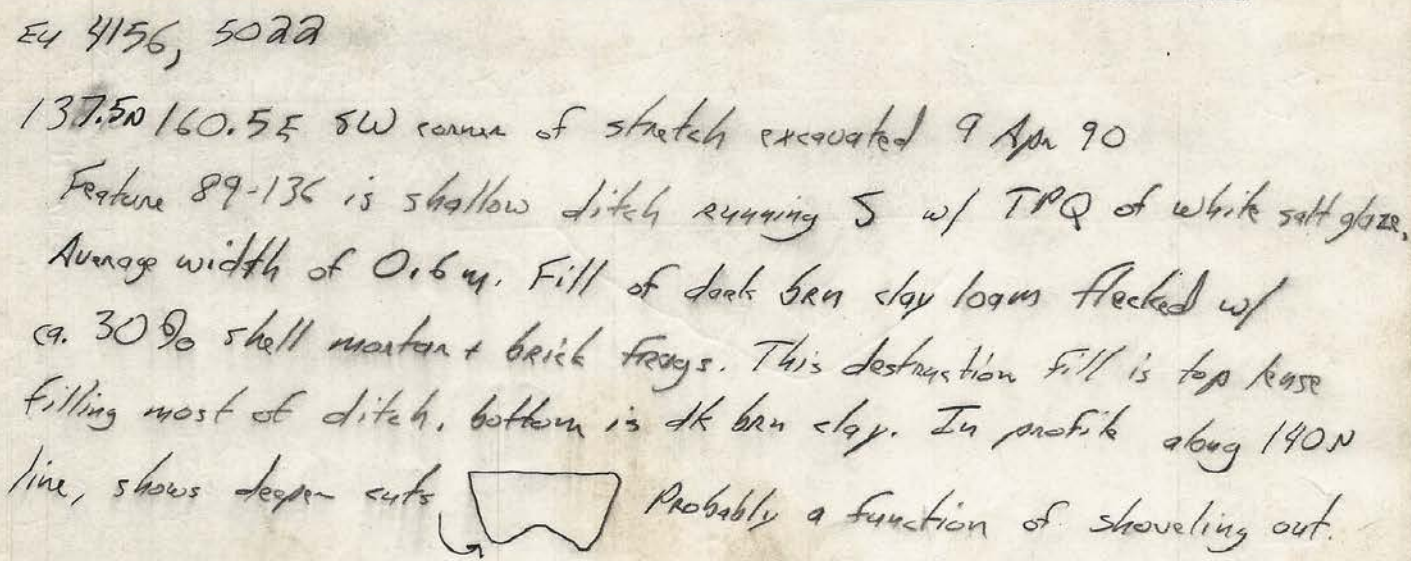 EU 4156, 5022
137.5N 160.5E SW corner of stretch excavated 9 Apr 90
Feature 89-136 is shallow ditch running S w/ TPQ of white salt glaze.
Average width of 0.6 m. Fill of dark brn clay loam flecked w/
ca. 30% shell mortar + brick frags. This destruction fill is top lense
filling most of ditch, bottom is dk brn clay. In profile along 140N
line, shows deeper cuts Probably a function of shoveling out.